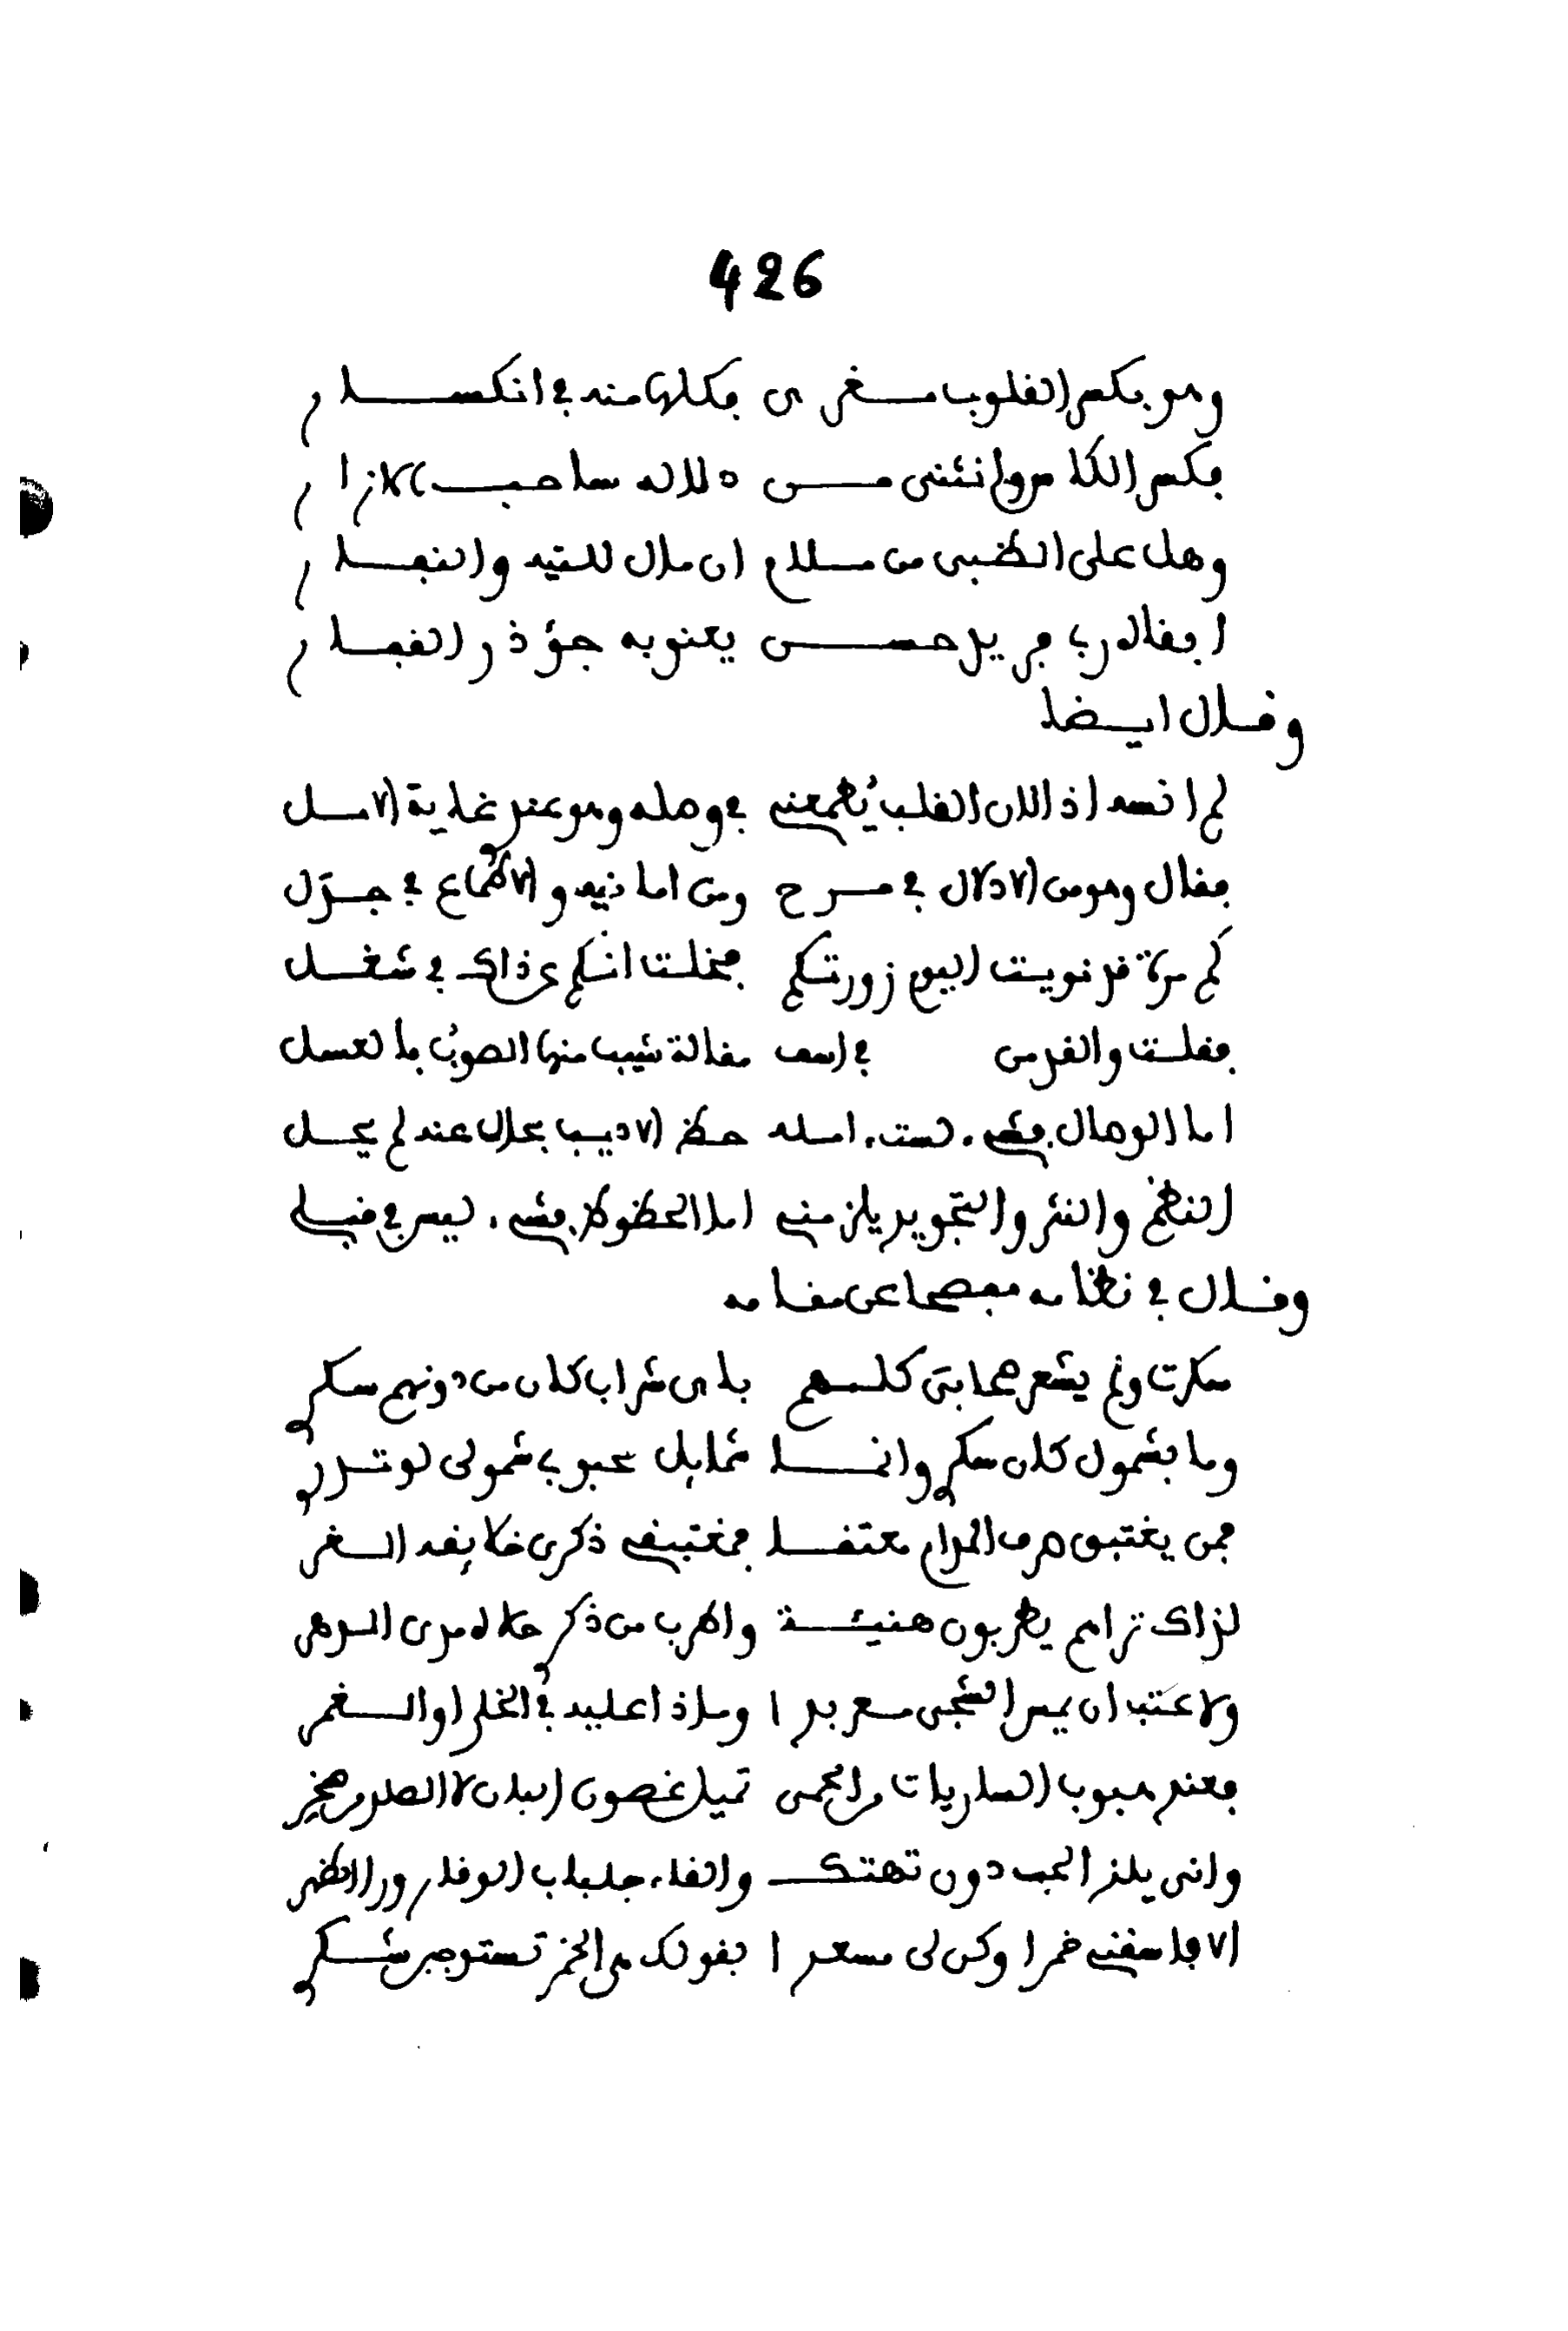 426
وهو بكسر القلوب مغرى فكلها منه في انكسار
فكسر اللام وانثنى من دلاله ساحب الازار
وهل على الظبي من ملام ان مال للتيه والنفار
ابقاه ربي فريد حسن يعنو به جؤذر القفار
وقال ايضا
لم انسه اذ الان القلب يُطمعني في وصله وهو عندي غاية الامل
فقال وهو من الادلال في مرح ومن امانيه والاطماع في جذل
كم مرة قد نويت اليوم زورتكم فخلت انكم عن ذاك في شغل
فقلت والقد من في اسف مقالة شيب منها الصوب بالعسل
اما الوصال فشيء لست اسله حظ الاديب بحال عنه لم يحل
النظم والنثر والتجويد يلزمني اما الحظوظ فشيء ليس في قبلي
وقال في نظامه مفصحا عن مقامه
سكرت ولم يشعر صحابتي كلهم باي شراب كان من دونهم سكري
وما بشمول كان سكري وانما شمايل محبوبي شمولي لو تدري
فمن يغتبق صرف المدام معتقا فمغتبقي ذكرى خلا بقد السغر
لذاك تراهم يطربون هنيئة واطرب من ذكر حلاله مدى الدهر
ولا عتب ان يمس الشجي معربدا وماذا عليه في الخلا او الغمر
فعند هبوب الساريات من الحمى تميل غصون البان لا الصلد من صخر
وانى يلذ الحب دون تهتك والقاء جلباب الوقار ورا الظهر
الا فاسقني خمرا وكن لي مسعدا بقولك هي الخمر تستوجبن شكري